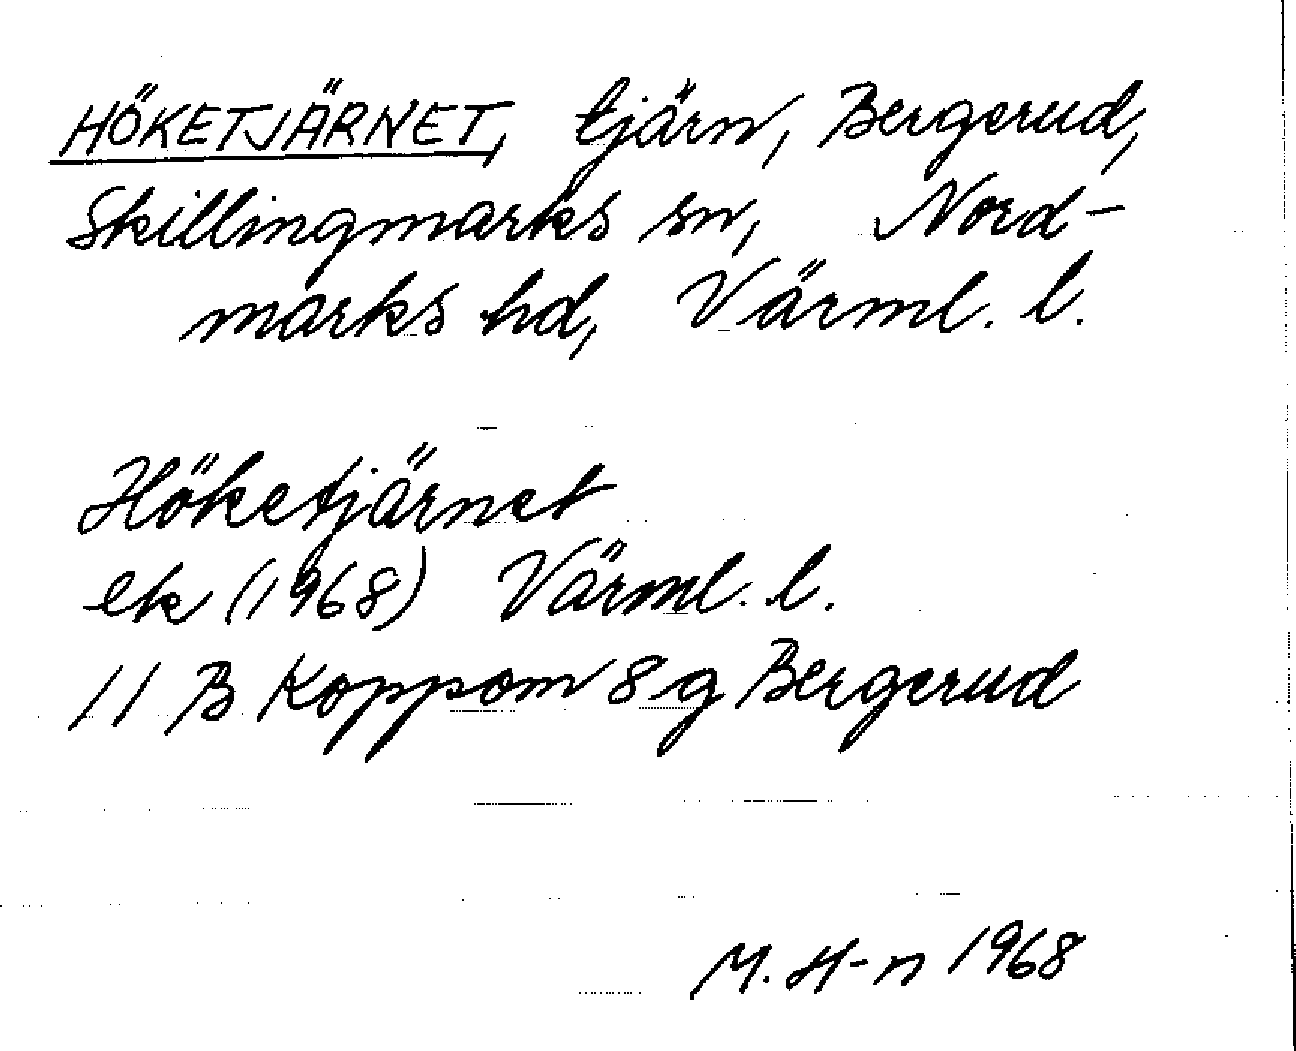 HÖKETJÄRNET, tjärn, Bergerud,
Skillingmarks sn, Nord-
marks hd, Värml. l.
Höketjärnet
ek (1968) Värml. l.
11 B Koppom 8 g Bergerud
M. H-n 1968